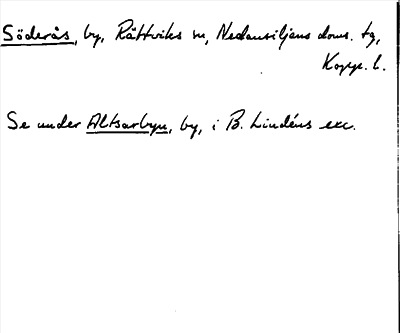 Söderås, by, Rättviks sn, Nedansiljans doms. tg,
Kopp. l.
Se under Altsarbyn, by, i B. Lindéns exc.